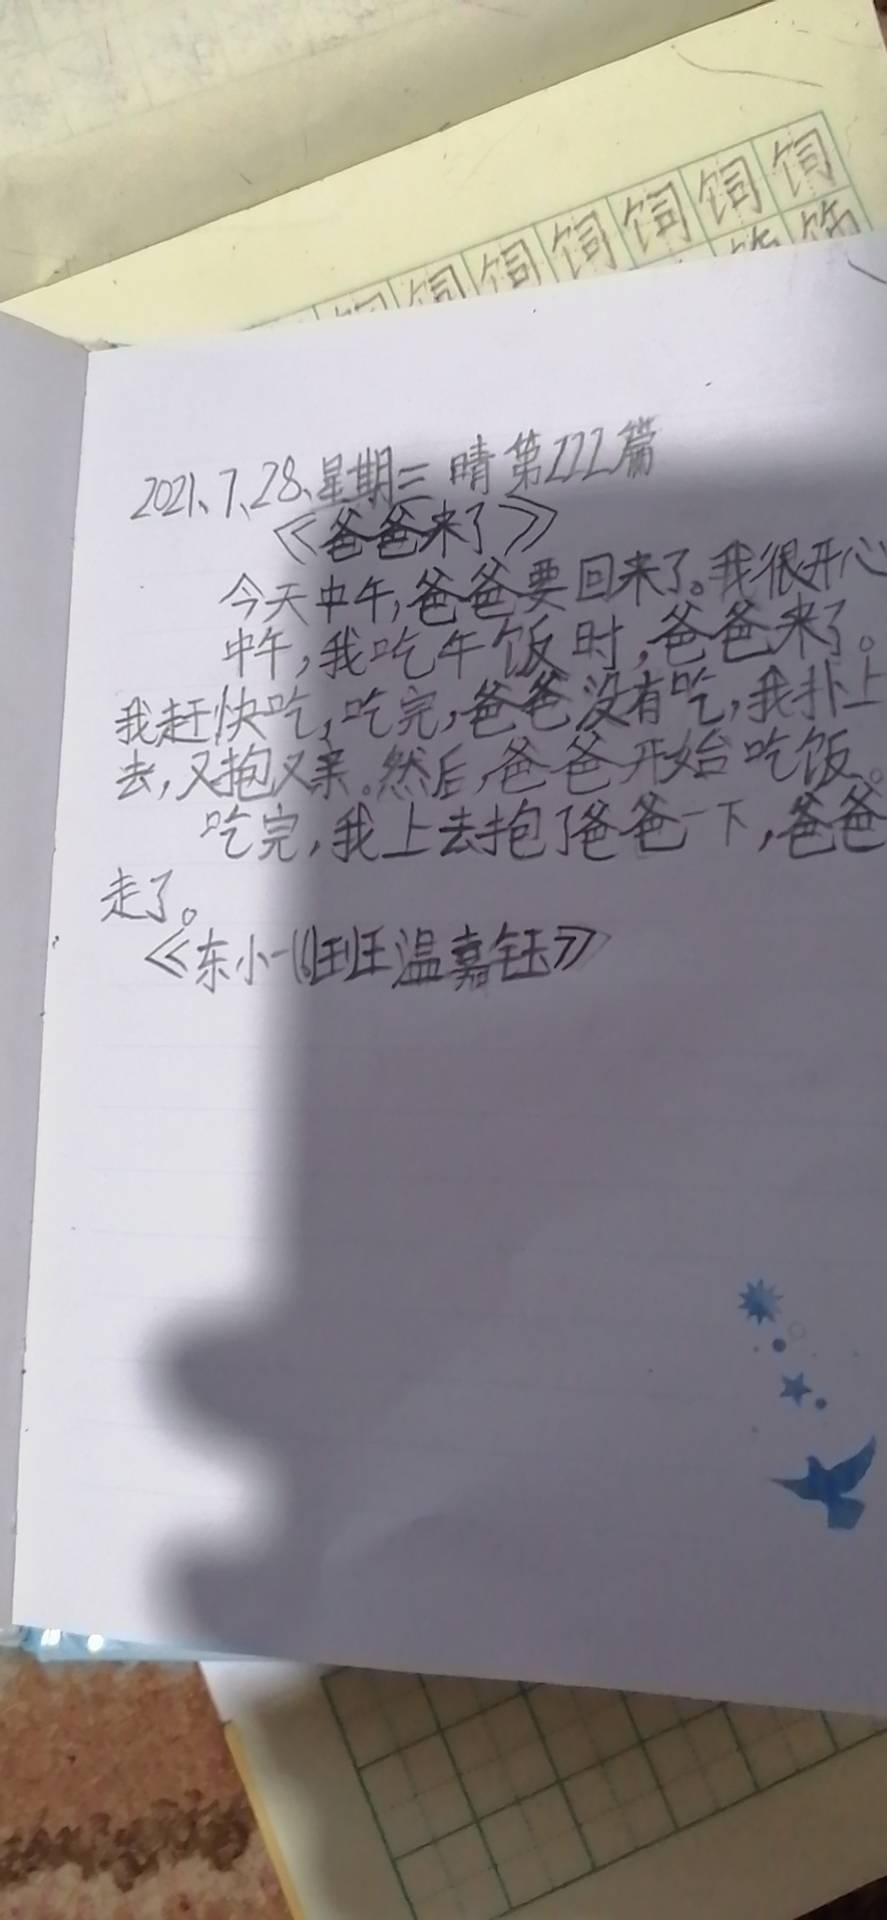 饲饲饲饲饲饲
2021、7、28、星期三 晴 第222篇
《爸爸来了》
今天中午,爸爸要回来了。我很开心
中午,我吃午饭时,爸爸来了。
我赶快吃,吃完,爸爸没有吃,我扑上
去,又抱又亲。然后,爸爸开始吃饭。
吃完,我上去抱了爸爸一下,爸爸
走了。
《东小一(6)班班温嘉钰》